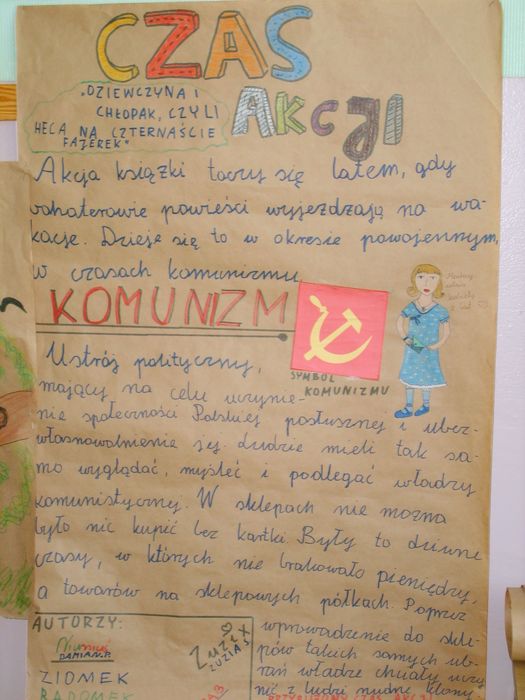 CZAS
AKCJI
„DZIEWCZYNA I
CHŁOPAK, CZYLI
HECA NA CZTERNAŚCIE
FAJEREK"
Akcja książki toczy się latem, gdy
bohaterowie powieści wyjeżdżają na wa-
kacje. Dzieje się to w okresie powojennym,
w czasach komunizmu
KOMUNIZM
SYMBOL
KOMUNIZMU
Ustrój polityczny,
mający na celu uczynie-
nie społeczności Polskiej posłusznej i ubez-
własnowolnienie jej. Ludzie mieli tak sa-
mo wyglądać, myśleć i podlegać władzy
komunistycznej. W sklepach nie można
było nic kupić bez kartki. Były to dziwne
czasy, w których nie brakowało pieniędzy,
a towarów na sklepowych półkach. Poprzez
wprowadzenie do skle-
pów takich samych ub-
rań władze chciały uczy-
nić z ludzi nudne klony.
AUTORZY:
DAMIAN.P.
ZIOMEK
RADOMEK
ZUZIA